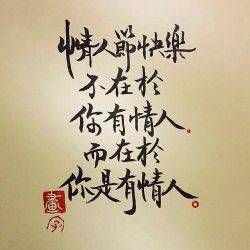 情人節快樂
不在於
你有情人。
而在於
你是有情人。